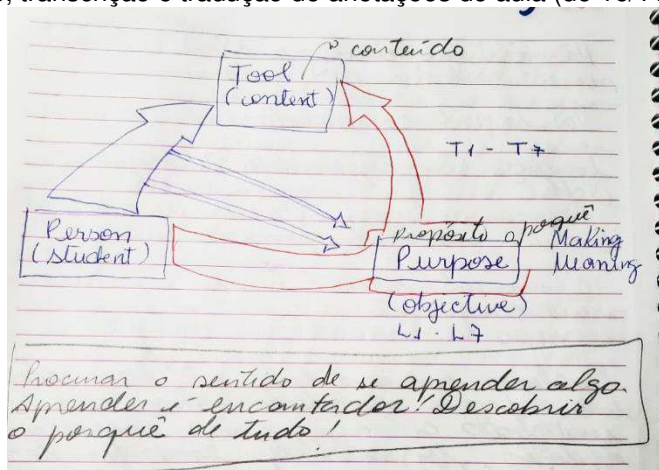 , transcrição e tradução de anotações de aula (de
conteúdo
Tool
(content)
T1 - T7
Person
(student)
Propósito o porquê
Purpose
Making
Meaning
(objective)
L1 - L7
Procurar o sentido de se aprender algo.
Aprender é encantador! Descobrir
o porquê de tudo!